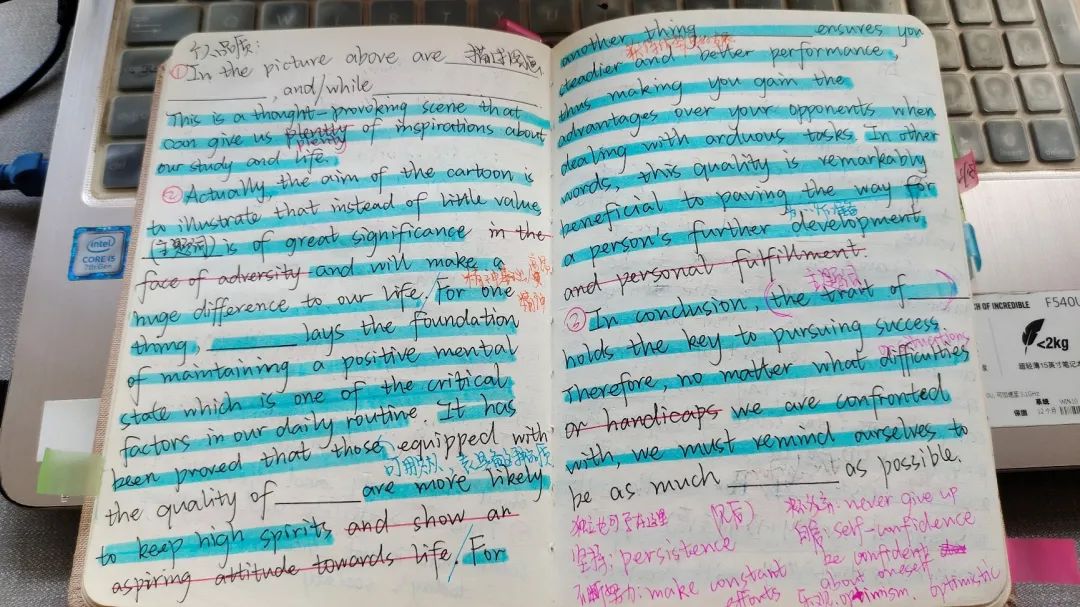 品质:
① In the picture above are ______ 描述图画
______, and/while ______
This is a thought-provoking scene that
can give us plently of inspirations about
plenty
our study and life.
② Actually, the aim of the cartoon is
to illustrate that instead of little value,
(主题词) is of great significance in the
face of adversity and will make a
huge difference to our life. For one
thing, ______ lays the foundation
of maintaining a positive mental
state which is one of the critical
factors in our daily routine. It has
been proved that those equipped with
the quality of ______ are more likely
to keep high spirits and show an
aspiring attitude towards life. For
another, thing ______ ensures you
steadier and better performance,
thus making you gain the
advantages over your opponents when
dealing with arduous tasks. In other
words, this quality is remarkably
beneficial to paving the way for
a person's further development
and personal fulfillment.
主题词
③ In conclusion, (the trait of ______)
holds the key to pursuing success.
Therefore, no matter what difficulties
or handicaps we are confronted
with, we must remind ourselves to
be as much ______ as possible.
never give up
坚持: persistence
自信: self-confidence
be confident
不断努力: make constant
efforts
about oneself
乐观: optimism. optimistic
intel
CORE i5
7th Gen
CH OF INCREDIBLE
F540U
<2kg